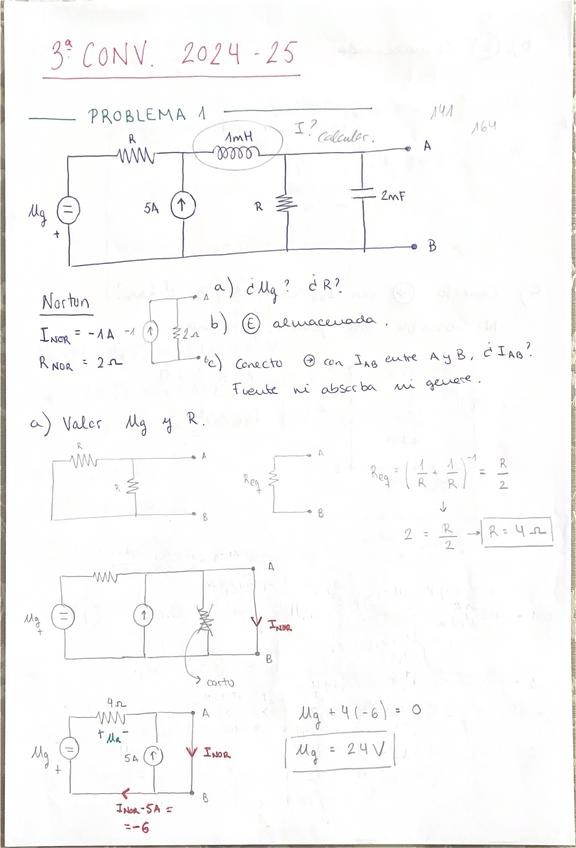 3ª CONV. 2024-25
PROBLEMA 1
141
164
R
1mH
I? calcular.
A
Ug
+
5A
R
2mF
B
Norton
INOR = -1A
RNOR = 2Ω
-1
2Ω
A
B
a) ¿Ug? ¿R?
b) E almacenada.
c) Conecto → con IAB entre A y B, ¿IAB?
Fuente ni absorba ni genere.
a) Valor Ug y R.
R
R
A
B
Req
A
B
Req = (1/R + 1/R)⁻¹ = R/2
↓
2 = R/2 → R = 4Ω
Ug
+
A
INOR
B
corto
4Ω
+ UR -
Ug
+
5A
A
INOR
B
INOR-5A =
=-6
Ug + 4(-6) = 0
Ug = 24V